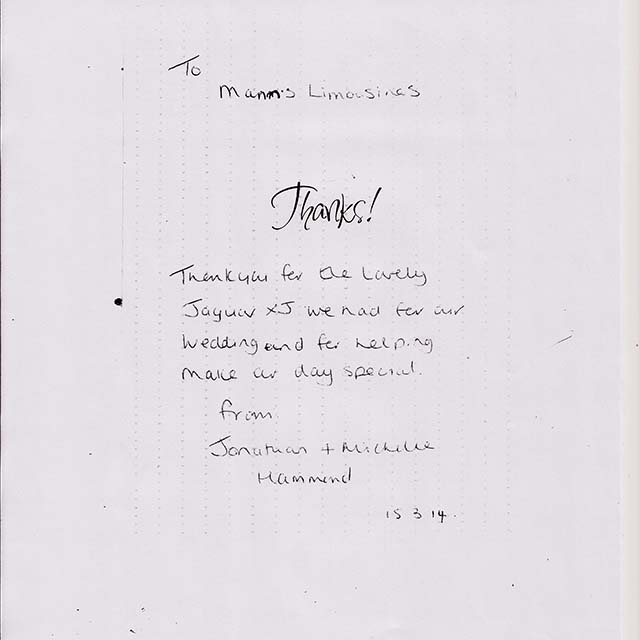 To
Mann's Limousines
Thanks!
Thankyou for the Lovely
Jaguar XJ we had for our
Wedding and for helping
make our day special.
from
Jonathan + Michelle
Hammond
15 3 14.